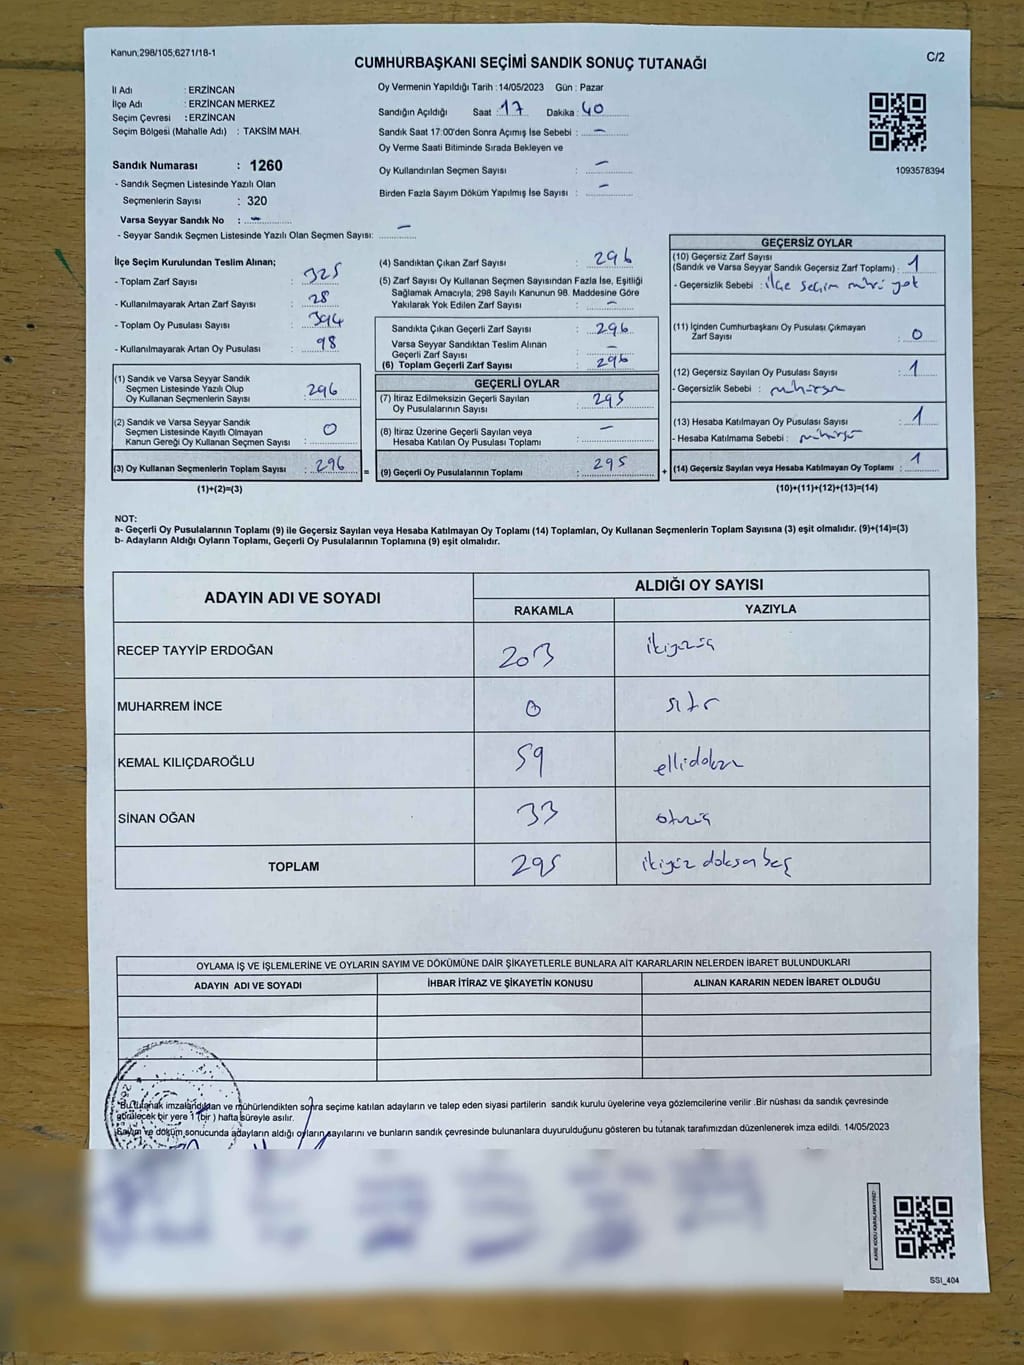 Kanun,298/105,6271/18-1
C/2
CUMHURBAŞKANI SEÇİMİ SANDIK SONUÇ TUTANAĞI
İl Adı : ERZİNCAN
İlçe Adı : ERZİNCAN MERKEZ
Seçim Çevresi : ERZİNCAN
Seçim Bölgesi (Mahalle Adı) : TAKSİM MAH.
Oy Vermenin Yapıldığı Tarih : 14/05/2023 Gün : Pazar
Sandığın Açıldığı Saat : 17 Dakika : 40
Sandık Saat 17:00'den Sonra Açımış İse Sebebi : –
Oy Verme Saati Bitiminde Sırada Bekleyen ve
Oy Kullandırılan Seçmen Sayısı : –
Birden Fazla Sayım Döküm Yapılmış İse Sayısı : –
1093578394
Sandık Numarası : 1260
- Sandık Seçmen Listesinde Yazılı Olan
Seçmenlerin Sayısı : 320
Varsa Seyyar Sandık No : –
- Seyyar Sandık Seçmen Listesinde Yazılı Olan Seçmen Sayısı: –
İlçe Seçim Kurulundan Teslim Alınan;
- Toplam Zarf Sayısı : 325
- Kullanılmayarak Artan Zarf Sayısı : 28
- Toplam Oy Pusulası Sayısı : 394
- Kullanılmayarak Artan Oy Pusulası : 98
(1) Sandık ve Varsa Seyyar Sandık
Seçmen Listesinde Yazılı Olup
Oy Kullanan Seçmenlerin Sayısı : 296
(2) Sandık ve Varsa Seyyar Sandık
Seçmen Listesinde Kayıtlı Olmayan
Kanun Gereği Oy Kullanan Seçmen Sayısı : 0
(3) Oy Kullanan Seçmenlerin Toplam Sayısı : 296
(1)+(2)=(3)
(4) Sandıktan Çıkan Zarf Sayısı : 296
(5) Zarf Sayısı Oy Kullanan Seçmen Sayısından Fazla İse, Eşitliği
Sağlamak Amacıyla; 298 Sayılı Kanunun 98. Maddesine Göre
Yakılarak Yok Edilen Zarf Sayısı : –
Sandıkta Çıkan Geçerli Zarf Sayısı : 296
Varsa Seyyar Sandıktan Teslim Alınan
Geçerli Zarf Sayısı : –
(6) Toplam Geçerli Zarf Sayısı : 296
GEÇERLİ OYLAR
(7) İtiraz Edilmeksizin Geçerli Sayılan
Oy Pusulalarının Sayısı : 295
(8) İtiraz Üzerine Geçerli Sayılan veya
Hesaba Katılan Oy Pusulası Toplamı : –
= (9) Geçerli Oy Pusulalarının Toplamı : 295
GEÇERSİZ OYLAR
(10) Geçersiz Zarf Sayısı
(Sandık ve Varsa Seyyar Sandık Geçersiz Zarf Toplamı) : 1
- Geçersizlik Sebebi : ilçe seçim mührü yok
(11) İçinden Cumhurbaşkanı Oy Pusulası Çıkmayan
Zarf Sayısı : 0
(12) Geçersiz Sayılan Oy Pusulası Sayısı : 1
- Geçersizlik Sebebi : mühürsüz
(13) Hesaba Katılmayan Oy Pusulası Sayısı : 1
- Hesaba Katılmama Sebebi : mühürsüz
+ (14) Geçersiz Sayılan veya Hesaba Katılmayan Oy Toplamı : 1
(10)+(11)+(12)+(13)=(14)
NOT:
a- Geçerli Oy Pusulalarının Toplamı (9) ile Geçersiz Sayılan veya Hesaba Katılmayan Oy Toplamı (14) Toplamları, Oy Kullanan Seçmenlerin Toplam Sayısına (3) eşit olmalıdır. (9)+(14)=(3)
b- Adayların Aldığı Oyların Toplamı, Geçerli Oy Pusulalarının Toplamına (9) eşit olmalıdır.
ADAYIN ADI VE SOYADI
ALDIĞI OY SAYISI
RAKAMLA YAZIYLA
RECEP TAYYİP ERDOĞAN 203 ikiyüzüç
MUHARREM İNCE 0 sıfır
KEMAL KILIÇDAROĞLU 59 ellidokuz
SİNAN OĞAN 33 otuzüç
TOPLAM 295 ikiyüz doksan beş
OYLAMA İŞ VE İŞLEMLERİNE VE OYLARIN SAYIM VE DÖKÜMÜNE DAİR ŞİKAYETLERLE BUNLARA AİT KARARLARIN NELERDEN İBARET BULUNDUKLARI
ADAYIN ADI VE SOYADI İHBAR İTİRAZ VE ŞİKAYETİN KONUSU ALINAN KARARIN NEDEN İBARET OLDUĞU
Bu tutanak imzalandıktan ve mühürlendikten sonra seçime katılan adayların ve talep eden siyasi partilerin sandık kurulu üyelerine veya gözlemcilerine verilir .Bir nüshası da sandık çevresinde
görülecek bir yere 1 (bir ) hafta süreyle asılır.
Sayım ve döküm sonucunda adayların aldığı oyların sayılarını ve bunların sandık çevresinde bulunanlara duyurulduğunu gösteren bu tutanak tarafımızdan düzenlenerek imza edildi. 14/05/2023
KARE KODU KARALAMAYINIZ!
SSI_404